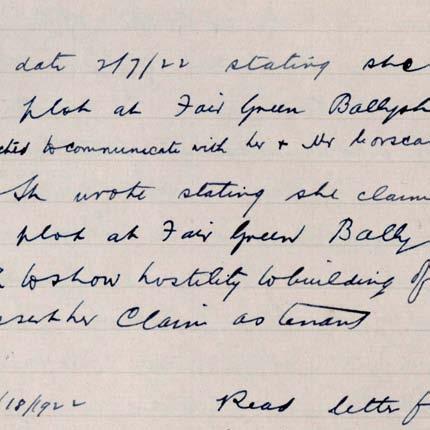 date 2/7/22 stating she
plot at Fair Green Ballysh
to communicate with her + Mr
wrote stating she claim
plot at Fair Green Bally
to show hostility to building of
her claim as tenant
/8/1922 Read letter f